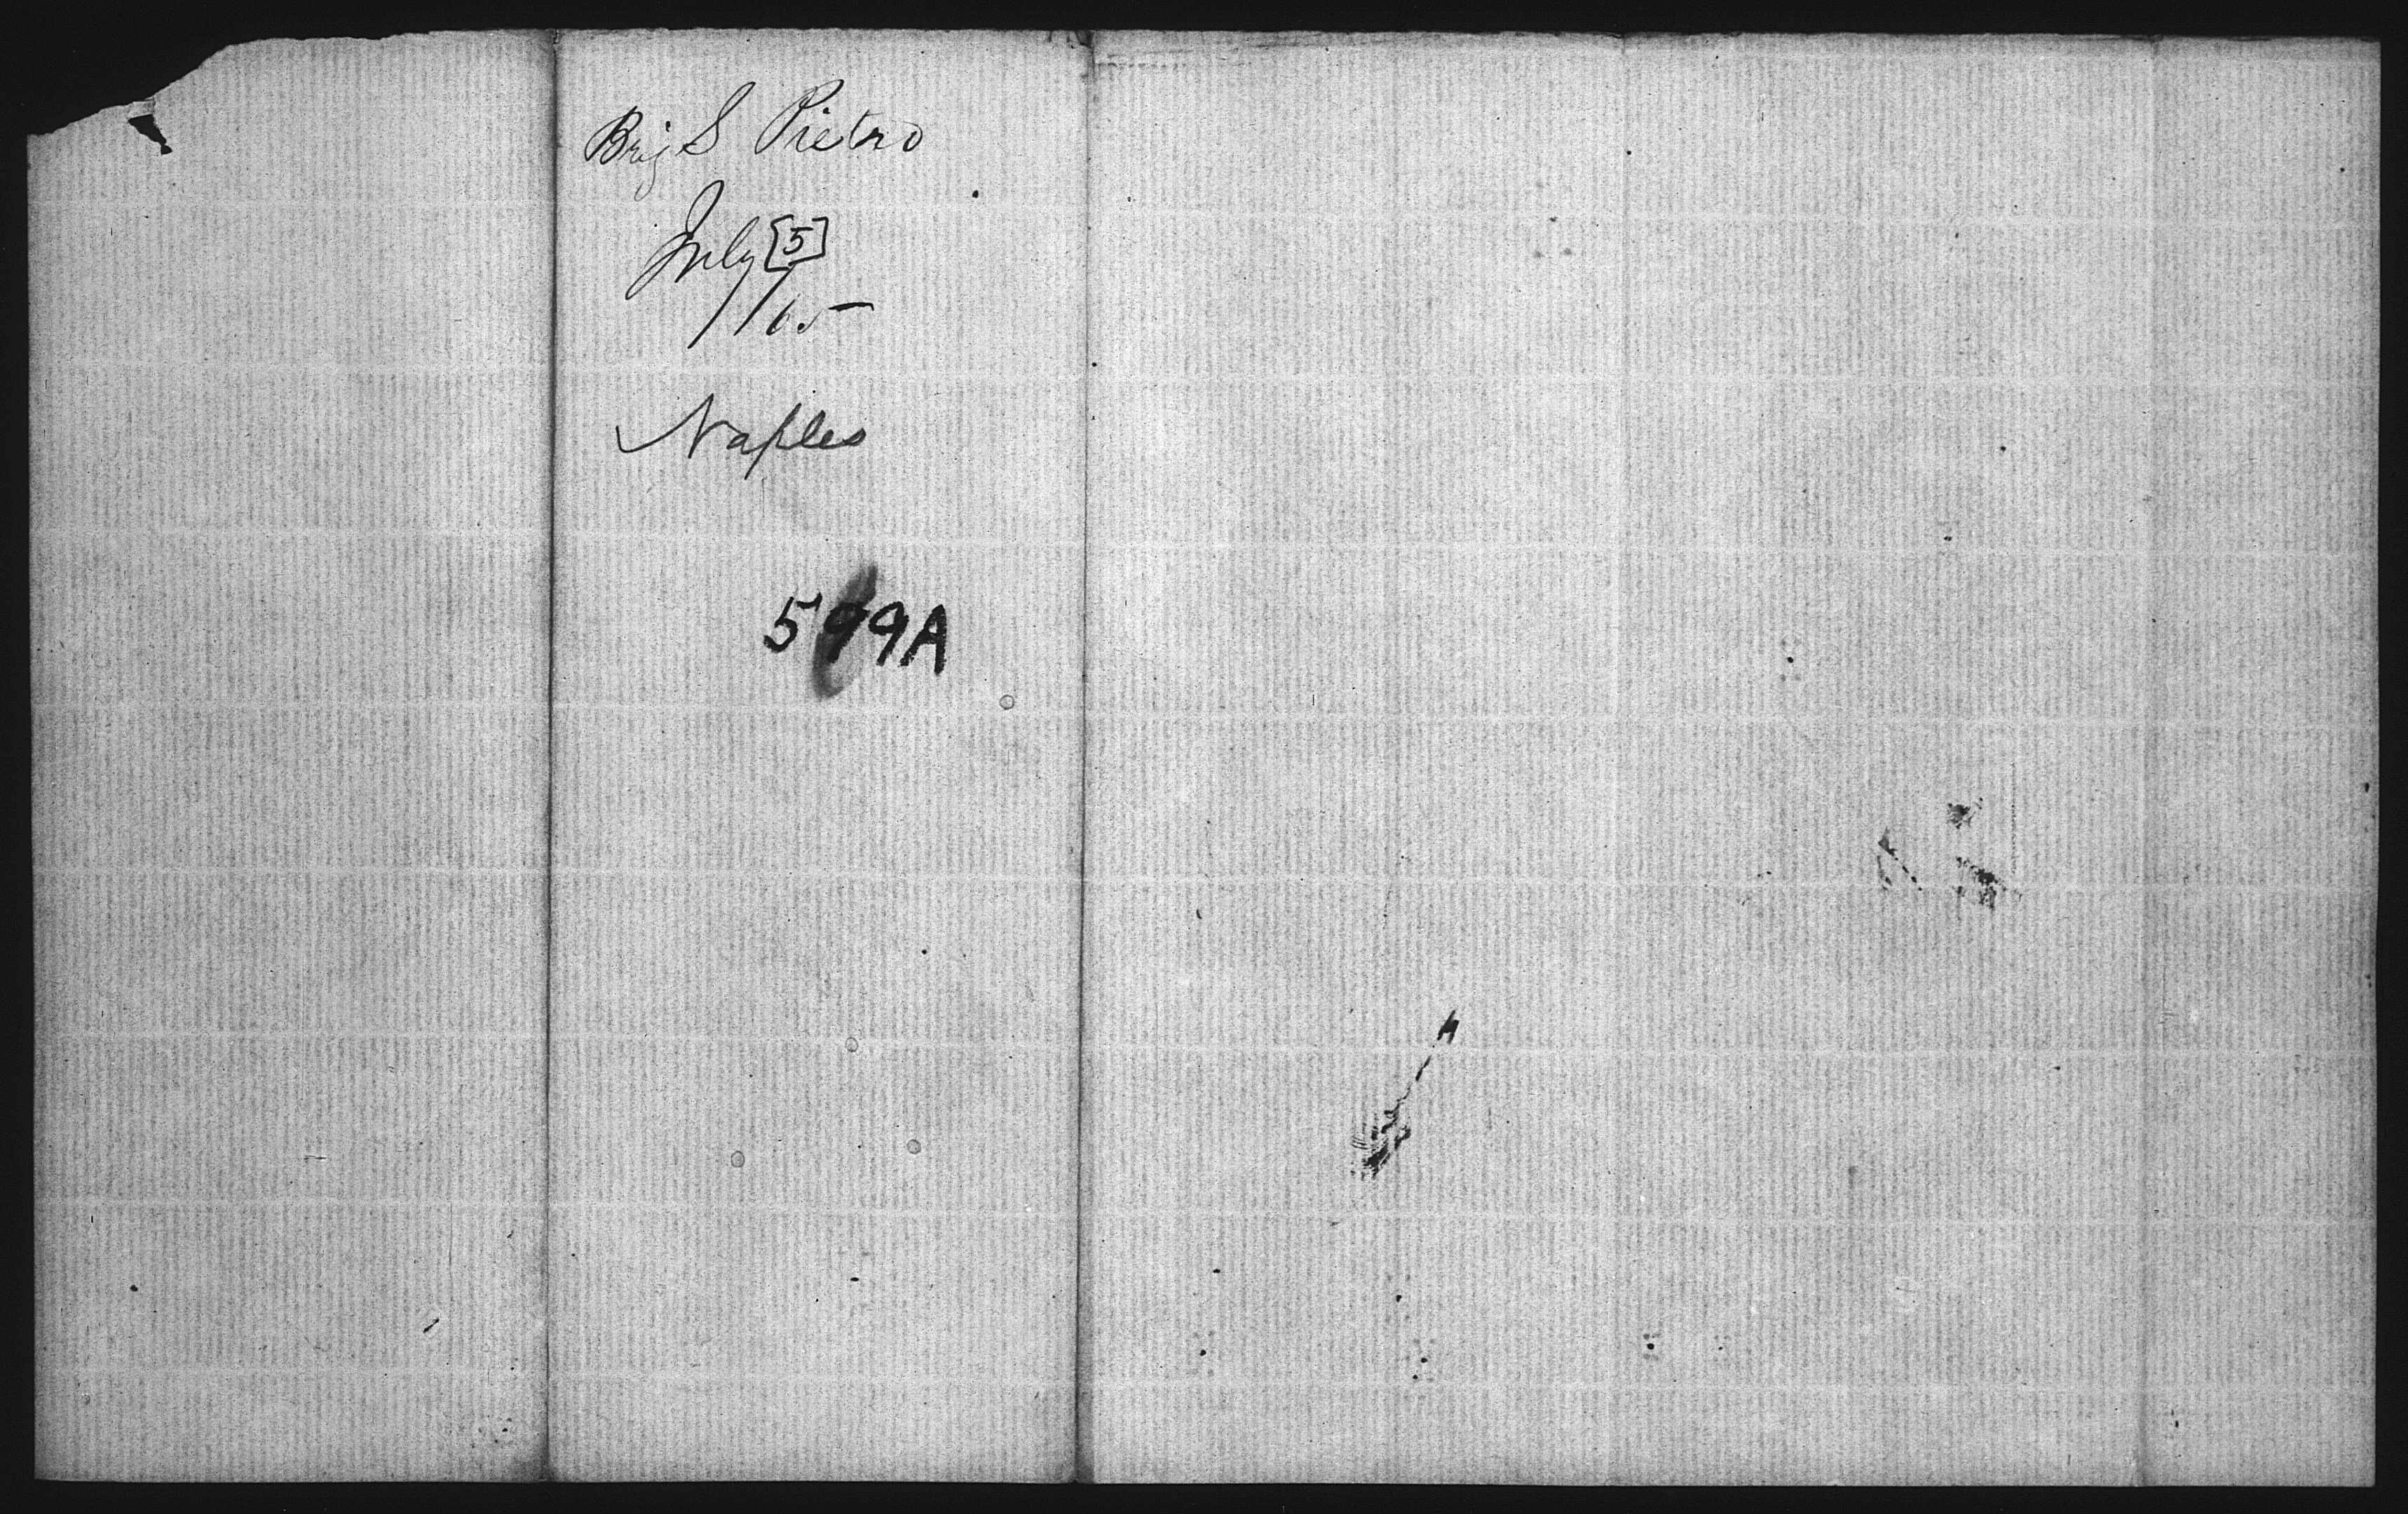 Brig S Pietro
July [5]
/65
Naples
599A